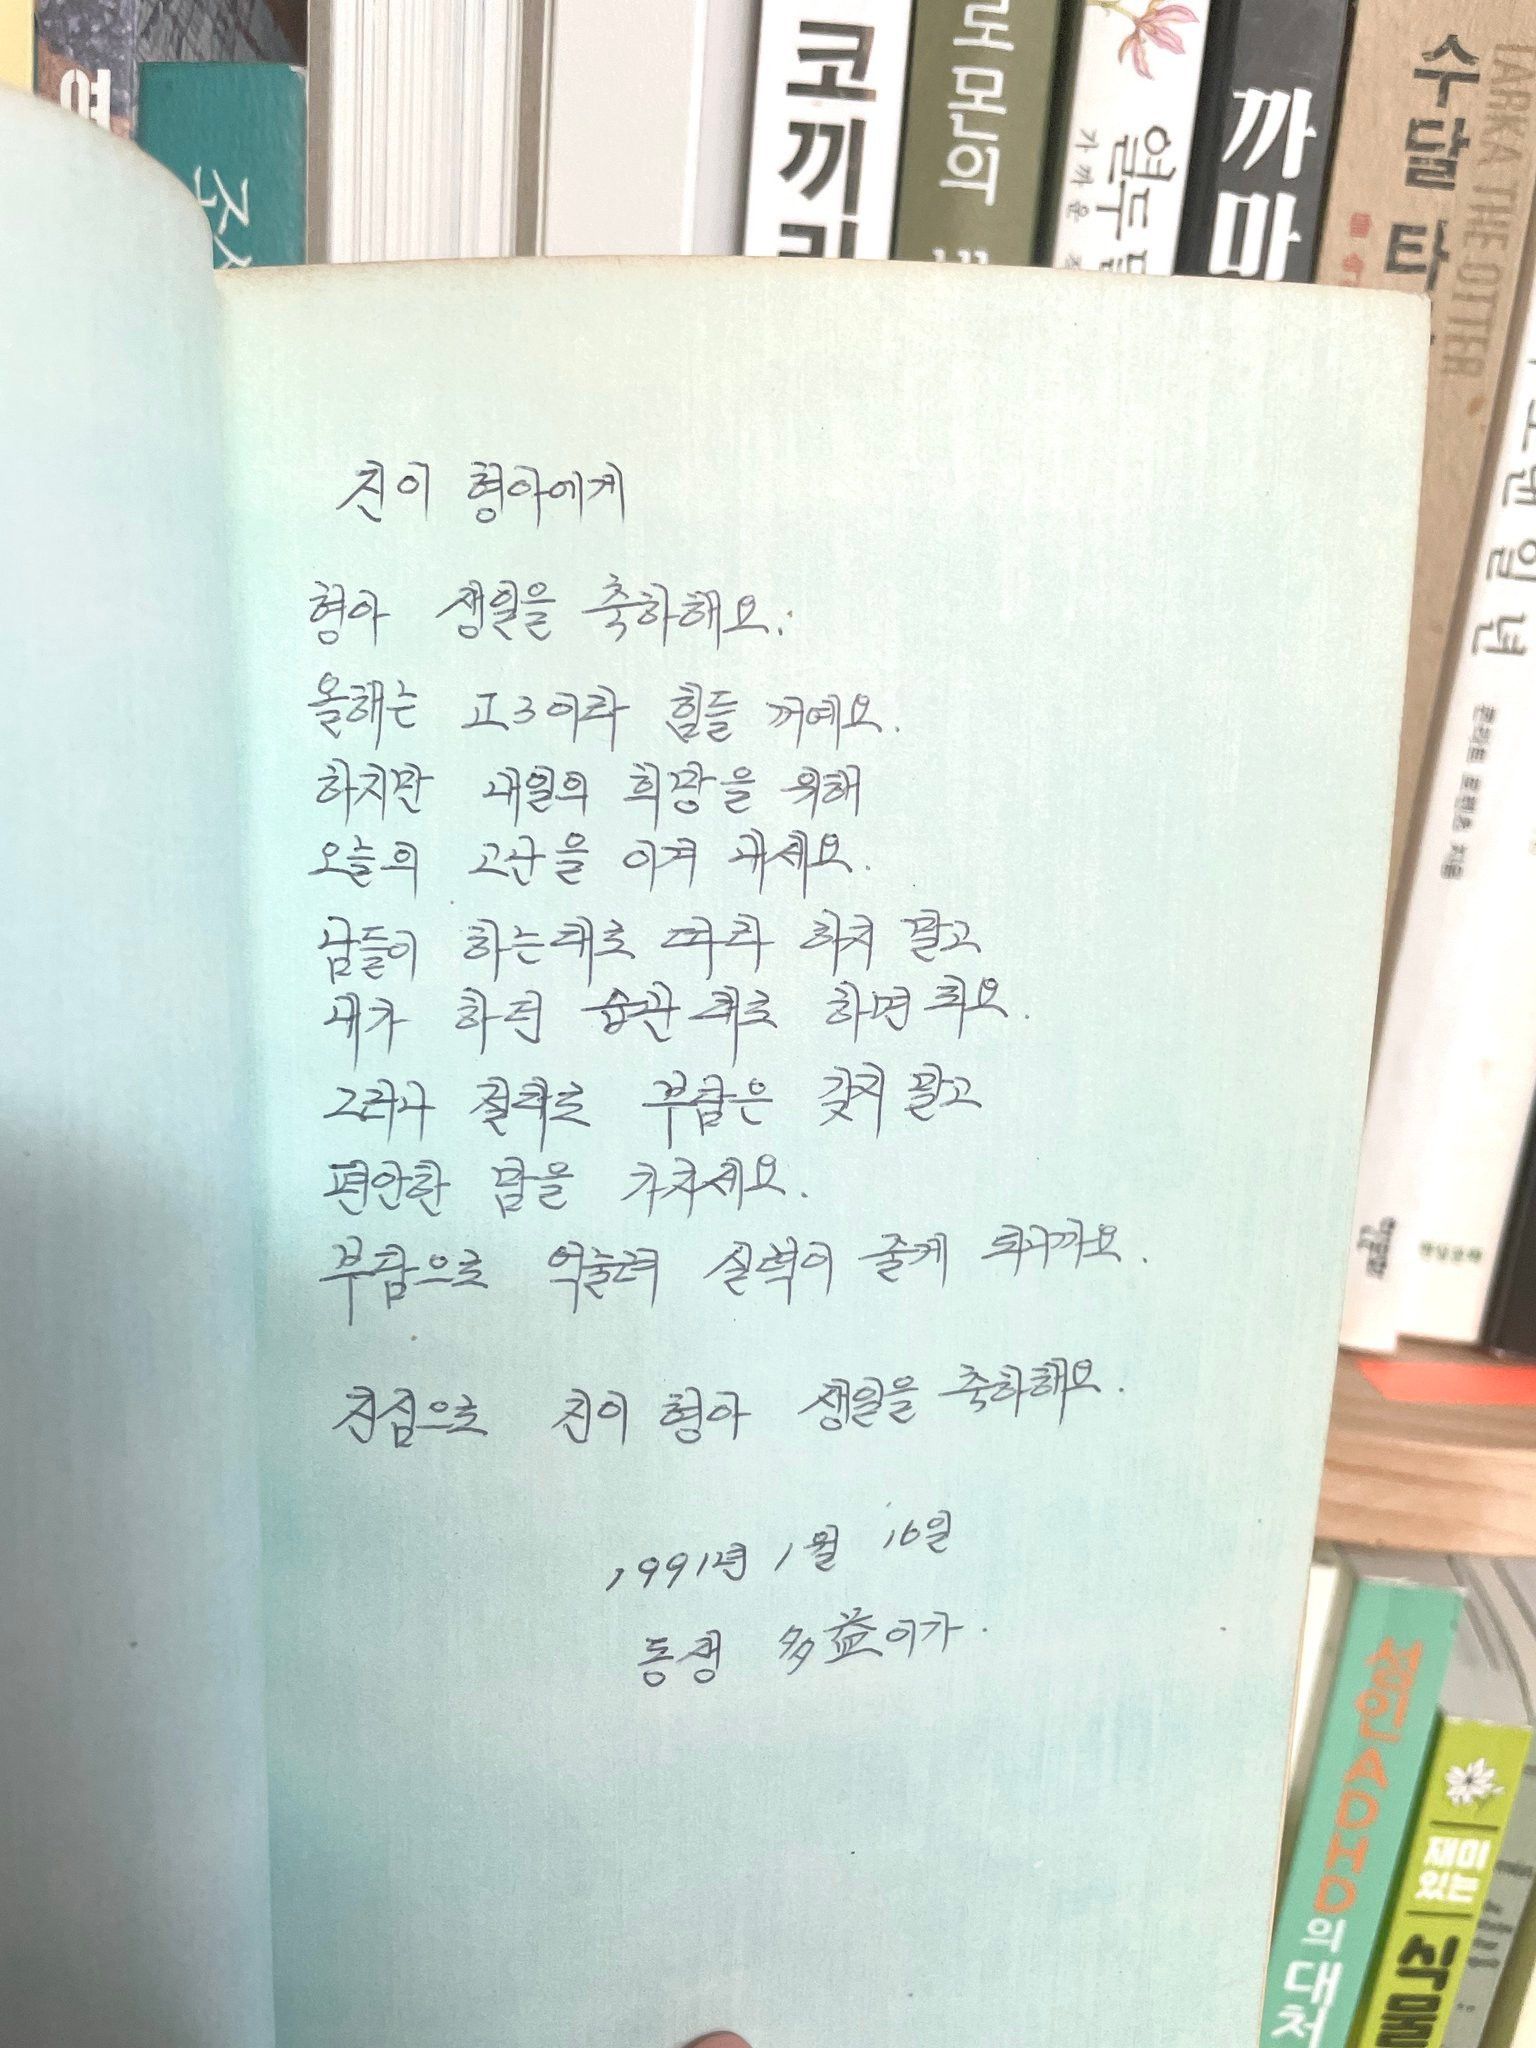 코끼리
로몬의
열두 달
가까운
까마
수달 타
TARKA THE OTTER
일 년
성인 ADHD의 대처
재미있는
식물
진이 형아에게
형아 생일을 축하해요.
올해는 고3이라 힘들 꺼예요.
하지만 내일의 희망을 위해
오늘의 고난을 이겨 내세요.
남들이 하는대로 따라 하지 말고
내가 하던 습관대로 하면 되요.
그러나 절대로 부담은 갖지 말고
편안한 맘을 가지세요.
부담으로 억눌려 실력이 줄게 되니까요.
진심으로 진이 형아 생일을 축하해요.
1991년 1월 16일
동생 多益이가.